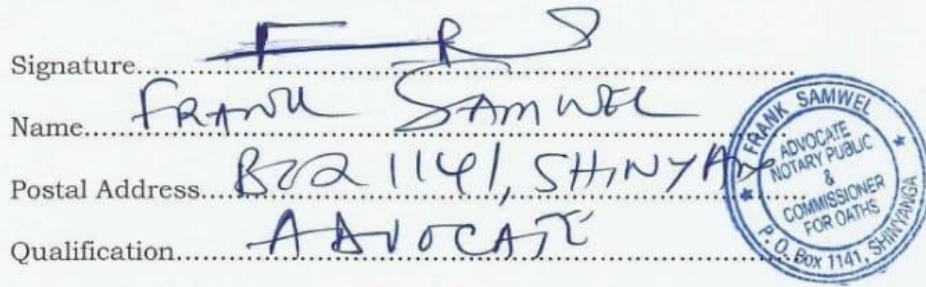 Signature....................
Name.... FRANK SAMWEL
Postal Address... BOX 1141, SHINYANGA
Qualification.... ADVOCATE
FRANK SAMWEL
ADVOCATE
NOTARY PUBLIC
&
COMMISSIONER
FOR OATHS
P. O. Box 1141, SHINYANGA